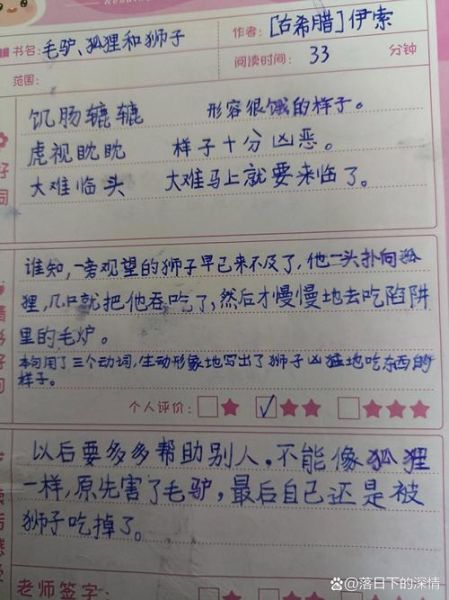 书名:毛驴、狐狸和狮子
作者:[古希腊]伊索
范围:
阅读时间: 33 分钟
饥肠辘辘 形容很饿的样子。
虎视眈眈 样子十分凶恶。
大难临头 大难马上就要来临了。
谁知,一旁观望的狮子早已来不及了,他一头扑向狐
狸,几口就把他吞吃了,然后才慢慢地去吃陷阱
里的毛炉。
本句用了三个动词,生动形象地写出了狮子凶猛地吃东西的
样子。
个人评价:
以后要多多帮助别人。不能像狐狸
一样,原先害了毛驴,最后自己还是被
狮子吃掉了。
老师签字:
@落日下的深情